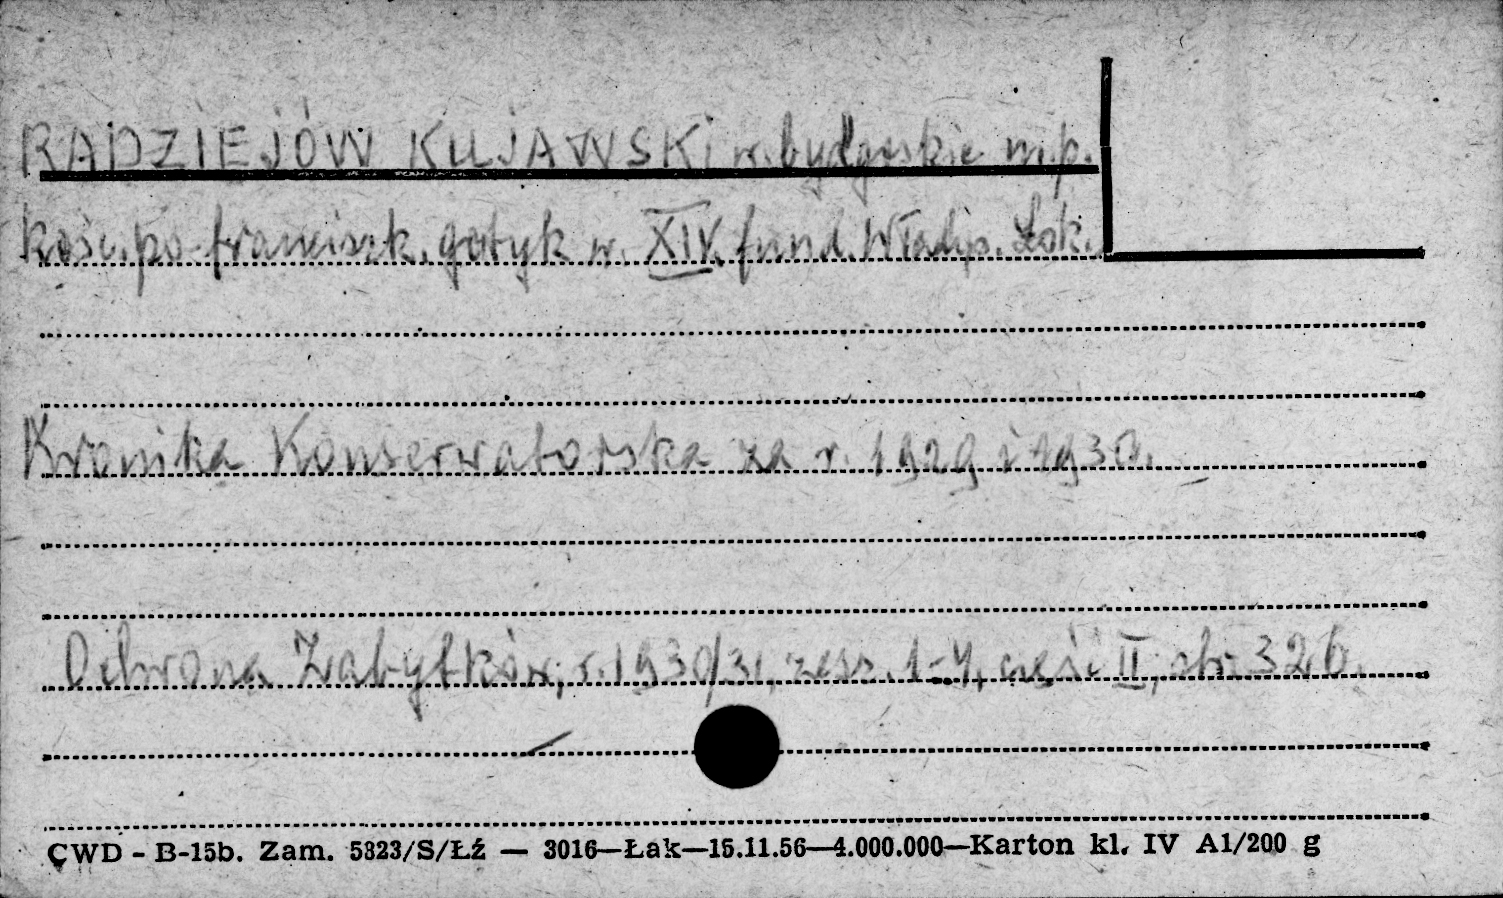 RADZIEJÓW KUJAWSKI w. bydgoskie m.p.
kośc. po-franciszk. gotyk w. XIV. fund. Władys. Łok.
Kronika Konserwatorska za r. 1929 i 1930.
Ochrona Zabytków, r. 1930/31, zesz. 1-4, część II, str. 326.
CWD - B-15b. Zam. 5823/S/Łź — 3016—Łak—15.11.56—4.000.000—Karton kl. IV A1/200 g